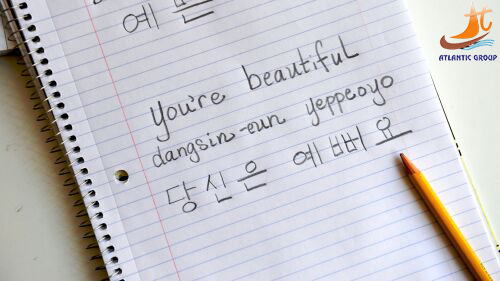 예
You're beautiful
dangsin-eun yeppeoyo
당신은 예뻐요
ATLANTIC GROUP